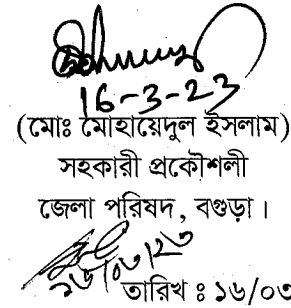 16-3-23
(মোঃ মোহায়েদুল ইসলাম)
সহকারী প্রকৌশলী
জেলা পরিষদ, বগুড়া।
১৬/০৩/২৩
তারিখ ঃ ১৬/০৩